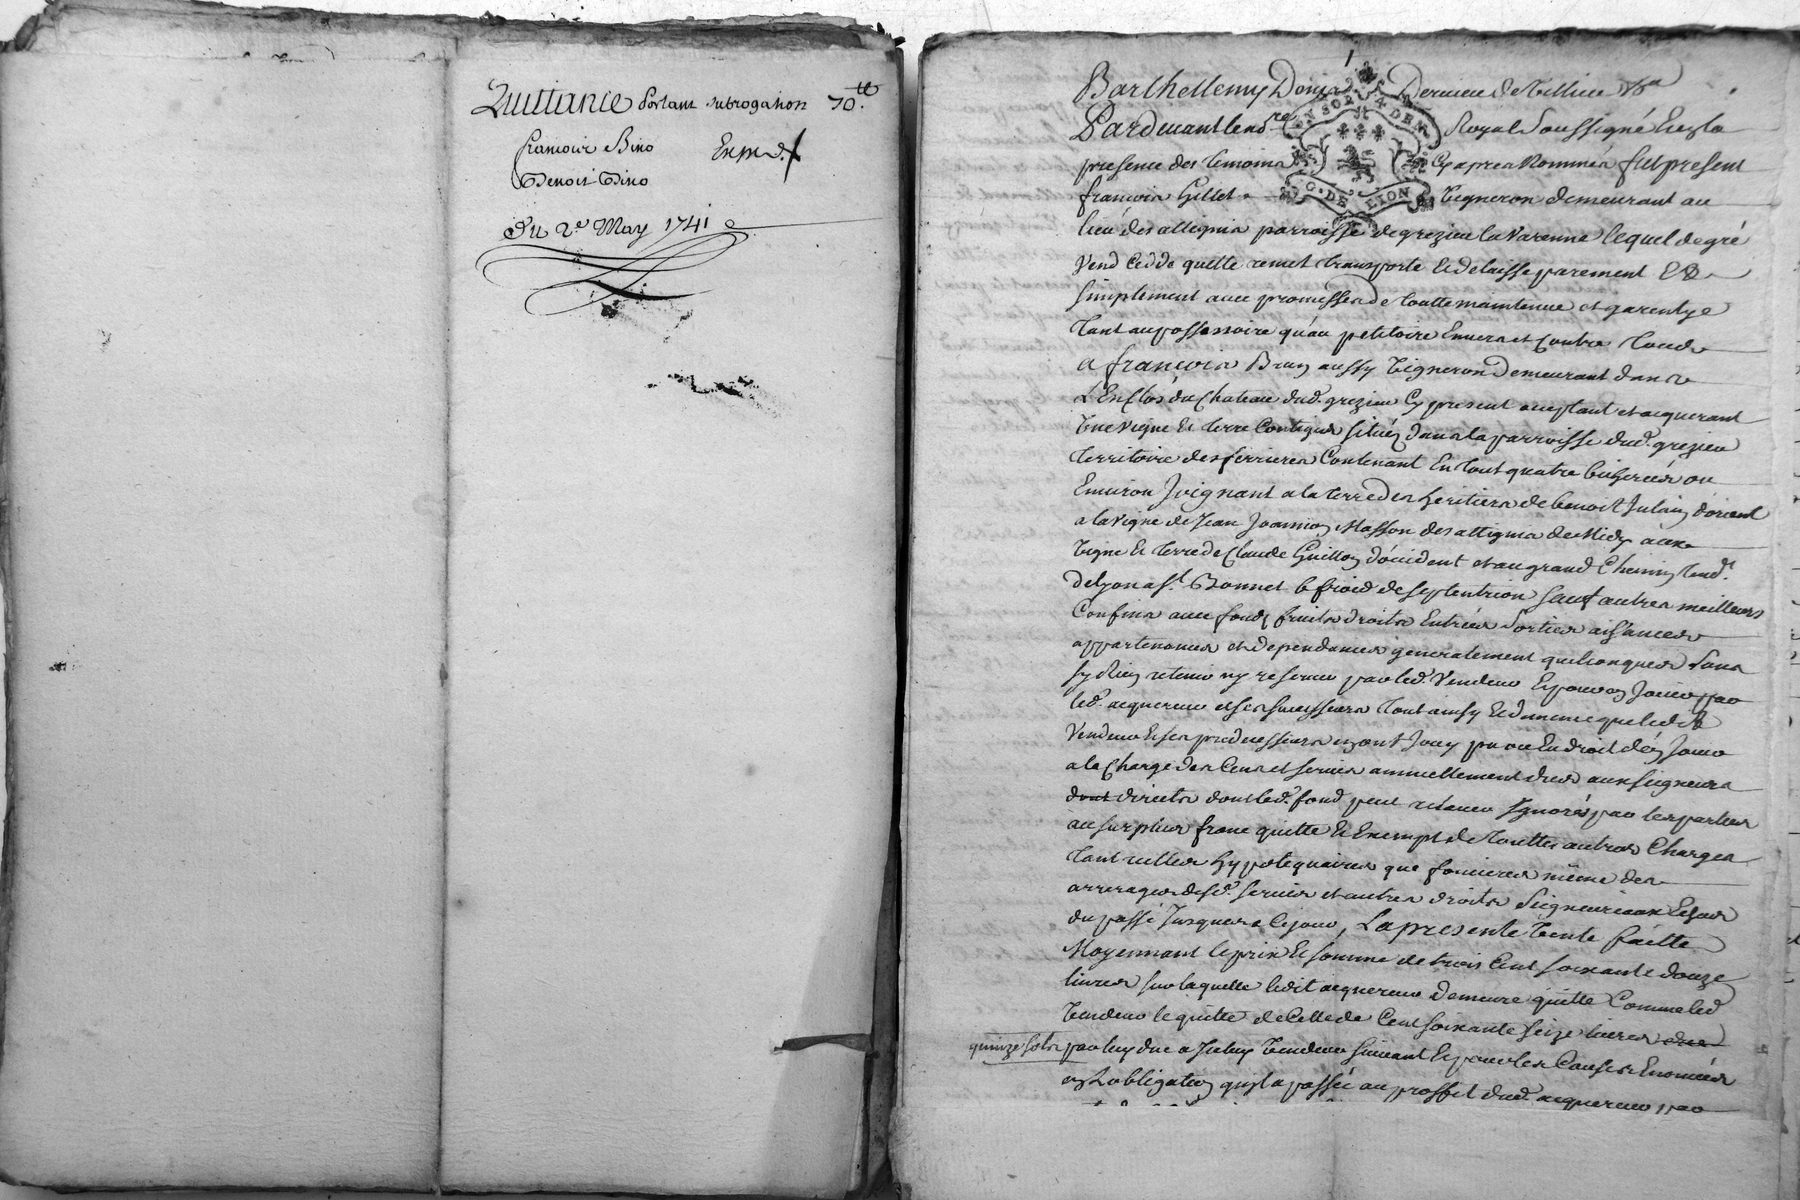 Quittance Portant subrogation 70.tt
françois Bino Exped.
Benoit Bino
Du 2.e May 1741
1
Barthellemy
Pardevant le no.re Royal Soussigné Et en la
presence des temoins Cy apres Nommés fut present
françois Gillet Vigneron demeurant au
lieu des attignies parroisse de grezieu la Varenne lequel de gré
Vend Cedde quitte remet transporte Et delaisse purement Et
simplement avec promesses de toutte maintenue et garentye
tant au possessoire qu'au petitoire Envers et Contre tous
a françois Brun aussy Vigneron Demeurant dans
L'Enclos du Chateau dud. grezieu Cy present acceptant et acquerant
Une Vigne Et terre Contigues situées dans la parroisse dud. grezieu
territoire des ferrieres Contenant En tout quatre bicherées ou
Environ Joignant a la terre des heritiers de benoist Julain d'orient
a la Vigne de Jean Joannon Masson des attignies de Midy aux
Vigne Et terre de Claude Guillon d'occident et au grand Chemin tend.t
de Lyon a S.t Bonnet le froid de septentrion sauf autres meilleurs
Confins avec fonds fruits droits Entrées Sorties aisances
appartenances et dependances generalement quelconques sans
sy Rien retenir ny reserver par led. Vendeur En pouvoir Jouir par
led. acquereur et ses successeurs tout ainsy Et de meme que led.
Vendeur Et ses predecesseurs en ont Jouy pu ou Eu droit d'en Jouir
a la Charge des Cens et servis annuellement dus aux seigneurs
dont directs dont led. fond peut relever Ignorés par les parties
au surplus franc quitte Et Exempt de touttes autres Charges
tant telles hypotequaires que foncieres même des
arrerages desd. servis et autres droits Seigneuriaux Echus
du passé Jusques a Cejour, La presente Vente faitte
Moyennant le prix Et somme de trois Cent soixante douze
livres sur laquelle ledit acquereur demeure quitte Comme led.
Vendeur le quitte de Celle de Cent soixante seize livres
quinze sols par luy due a Iceluy Vendeur suivant Et pour les Causes Enoncées
en l'obligation qu'il a passée au proffit dud. acquereur par
C. DE LION